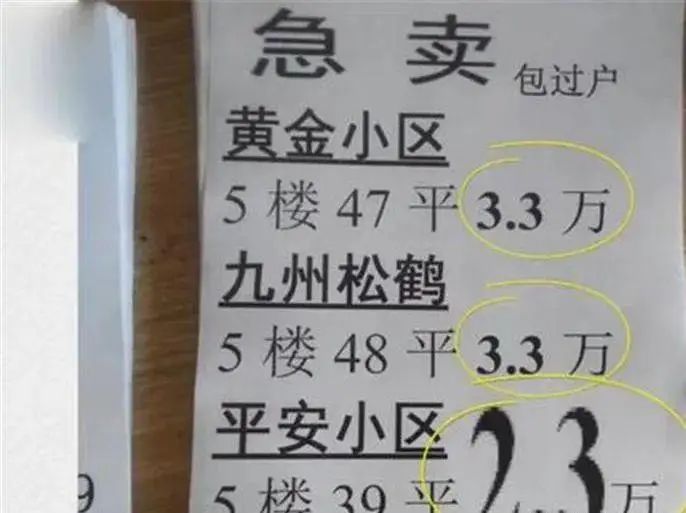 急卖 包过户
黄金小区
5楼47平3.3万
九州松鹤
5楼48平3.3万
平安小区
5楼39平2.3万
9